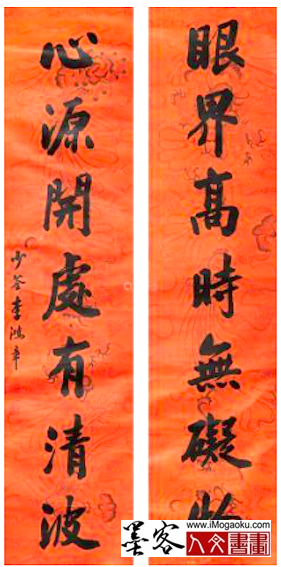 眼界高時無礙
心源開處有清波
少荃李鴻章
墨客
www.iMogaoku.com
人文書畫